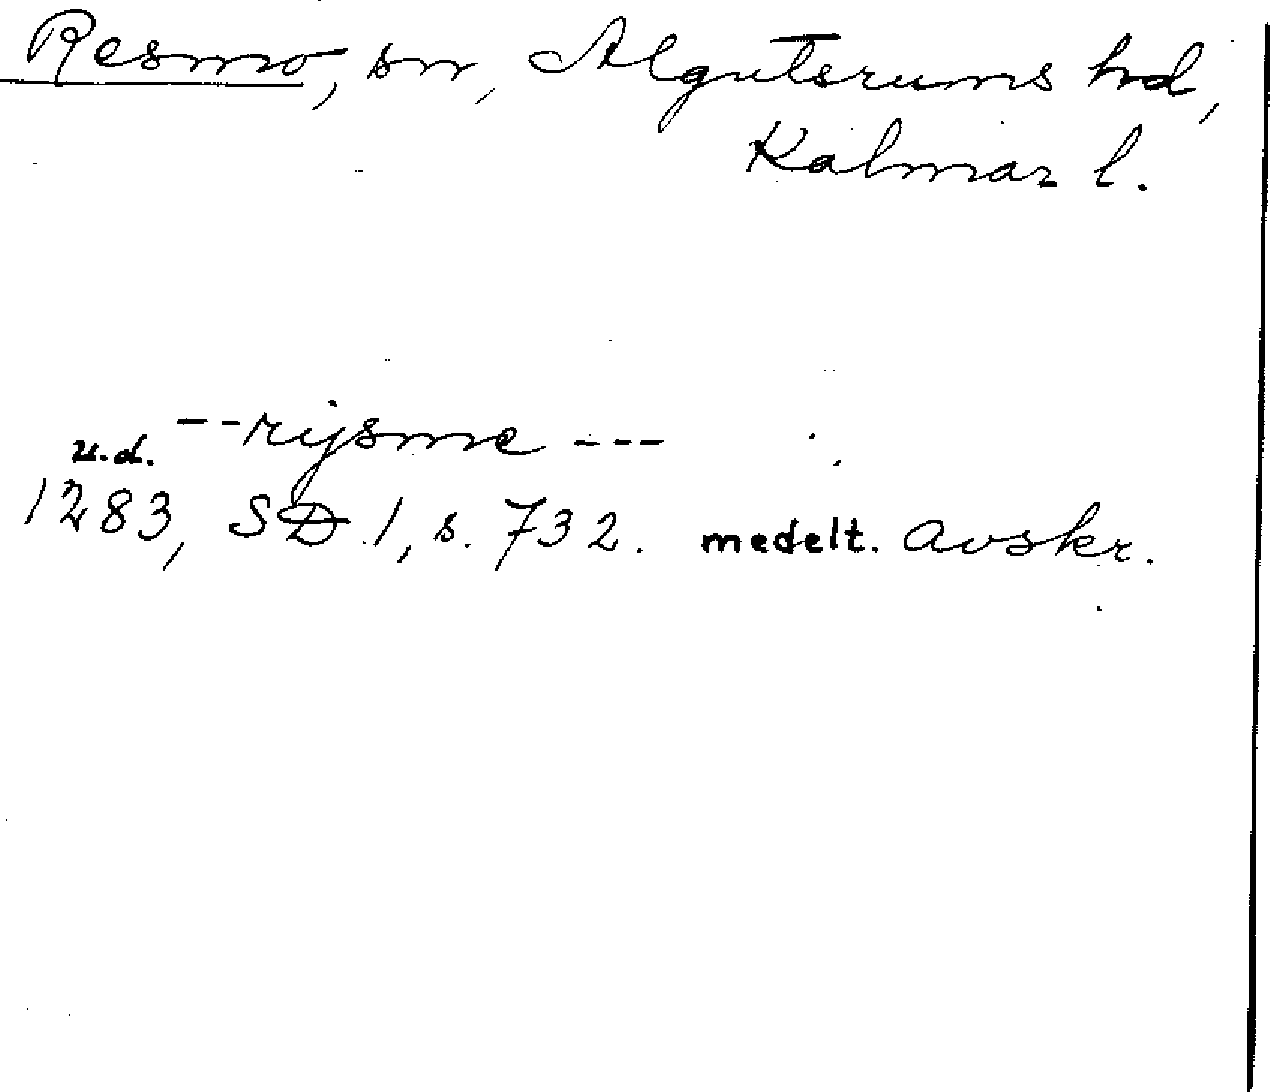 Resmo, sn, Algutsrums hd,
Kalmar l.
--rysme---
u.d.
1283, SD 1, s. 732. medelt. avskr.